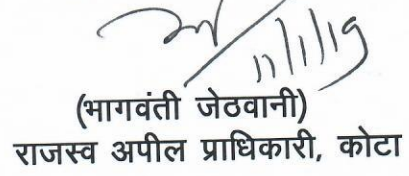 11/1/19
(भागवंती जेठवानी)
राजस्व अपील प्राधिकारी, कोटा